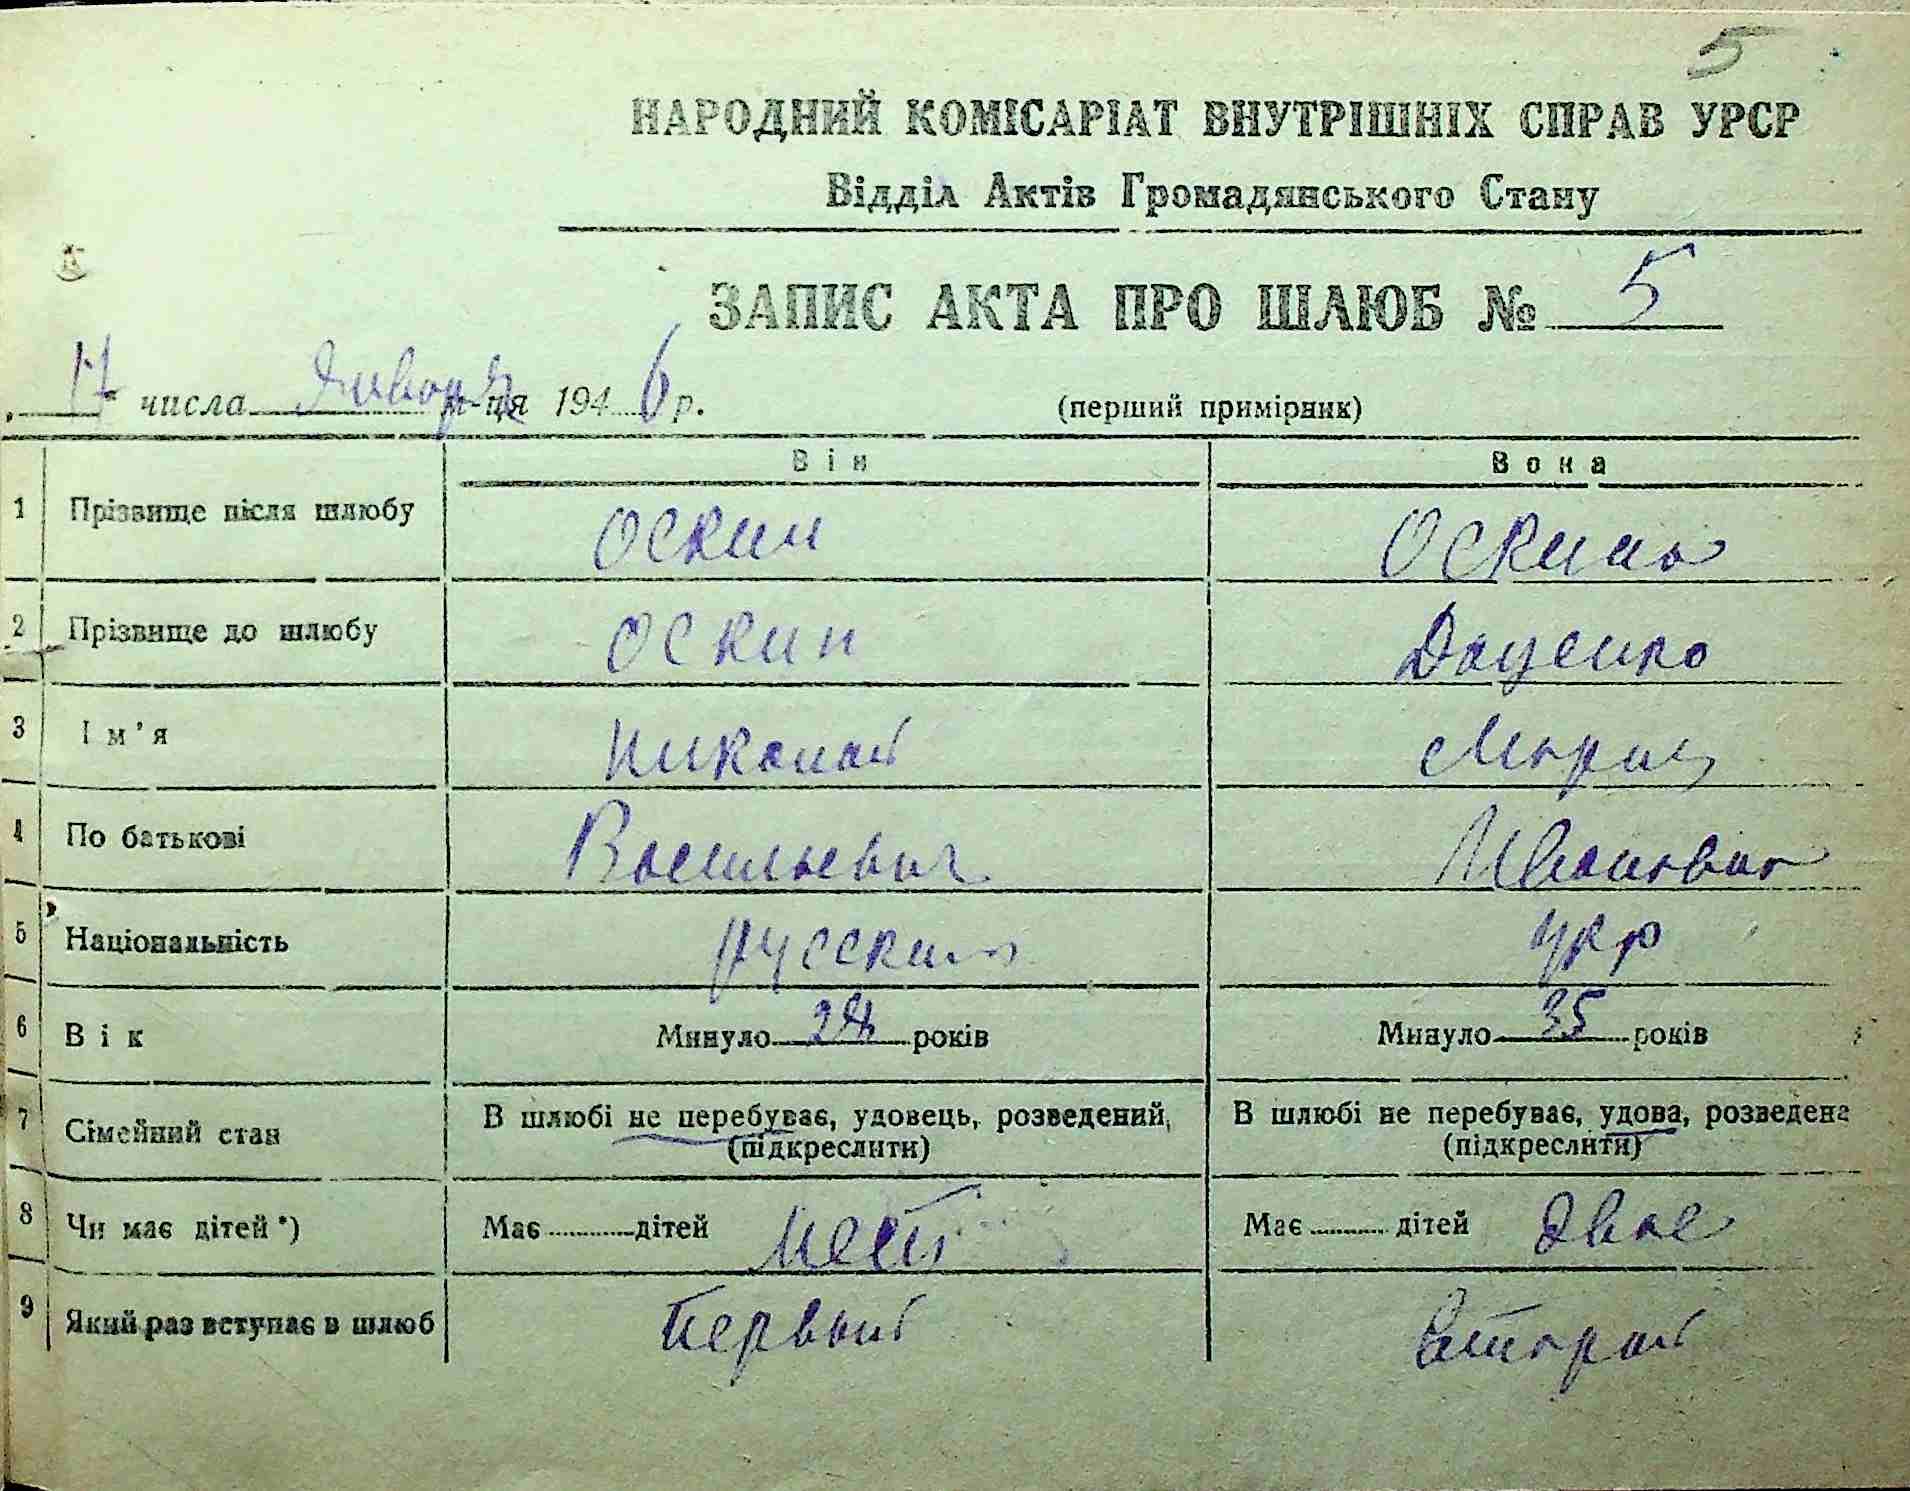 5
НАРОДНИЙ КОМІСАРІАТ ВНУТРІШНІХ СПРАВ УРСР
Відділ Актів Громадянського Стану
ЗАПИС АКТА ПРО ШЛЮБ № 5
17 числа Января м-ця 1946 р. (перший примірник)
Він Вона
1 Прізвище після шлюбу Оскин Оскина
2 Прізвище до шлюбу Оскин Доценко
3 Ім'я Николай Мария
4 По батькові Васильевич Ивановна
5 Національність русский укр
6 Вік Минуло років Минуло 35 років
7 Сімейний стан В шлюбі не перебуває, удовець, розведений, В шлюбі не перебуває, удова, розведена
(підкреслити) (підкреслити)
8 Чи має дітей *) Має дітей Нет Має дітей двое
9 Який раз вступає в шлюб Первый Второй